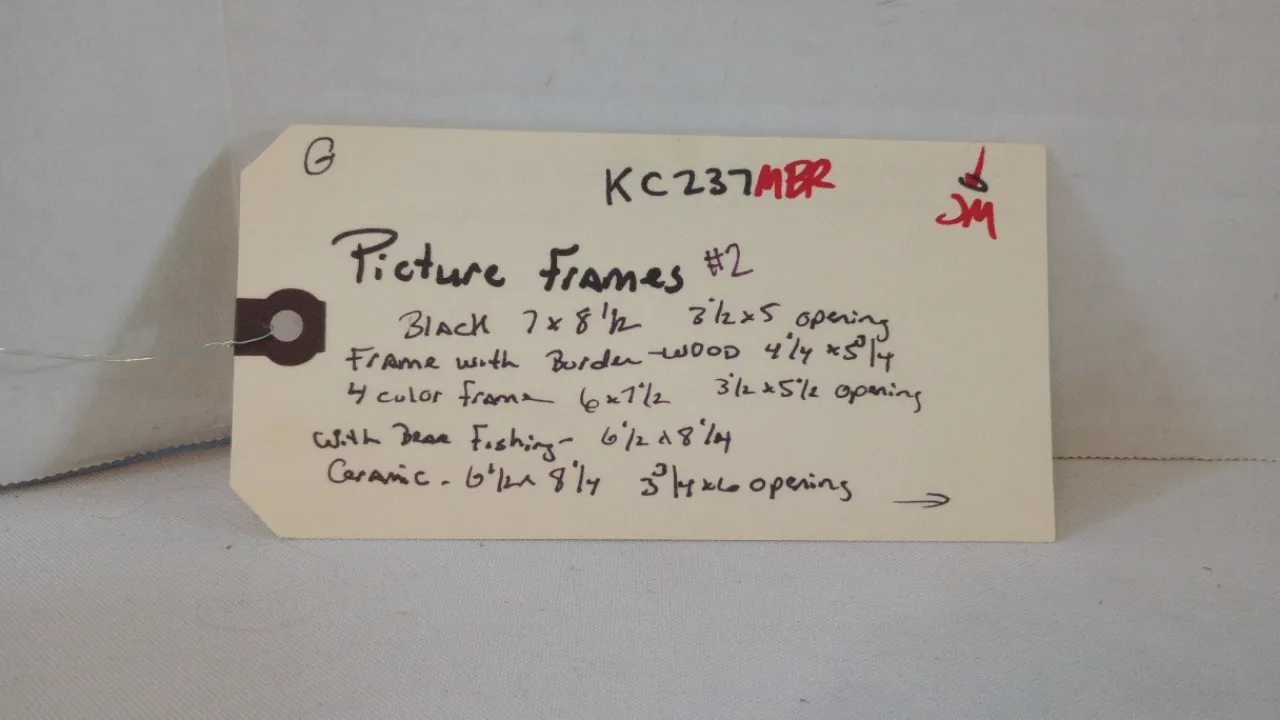 G
KC237MBR
JM
Picture Frames #2
Black 7 x 8 1/2 3 1/2 x 5 opening
Frame with Border - WOOD 4 1/4 x 5 3/4
4 color frame 6 x 7 1/2 3 1/2 x 5 1/2 opening
with Bear Fishing - 6 1/2 x 8 1/4
Ceramic - 6 1/2 x 8 1/4 3 3/4 x 6 opening →